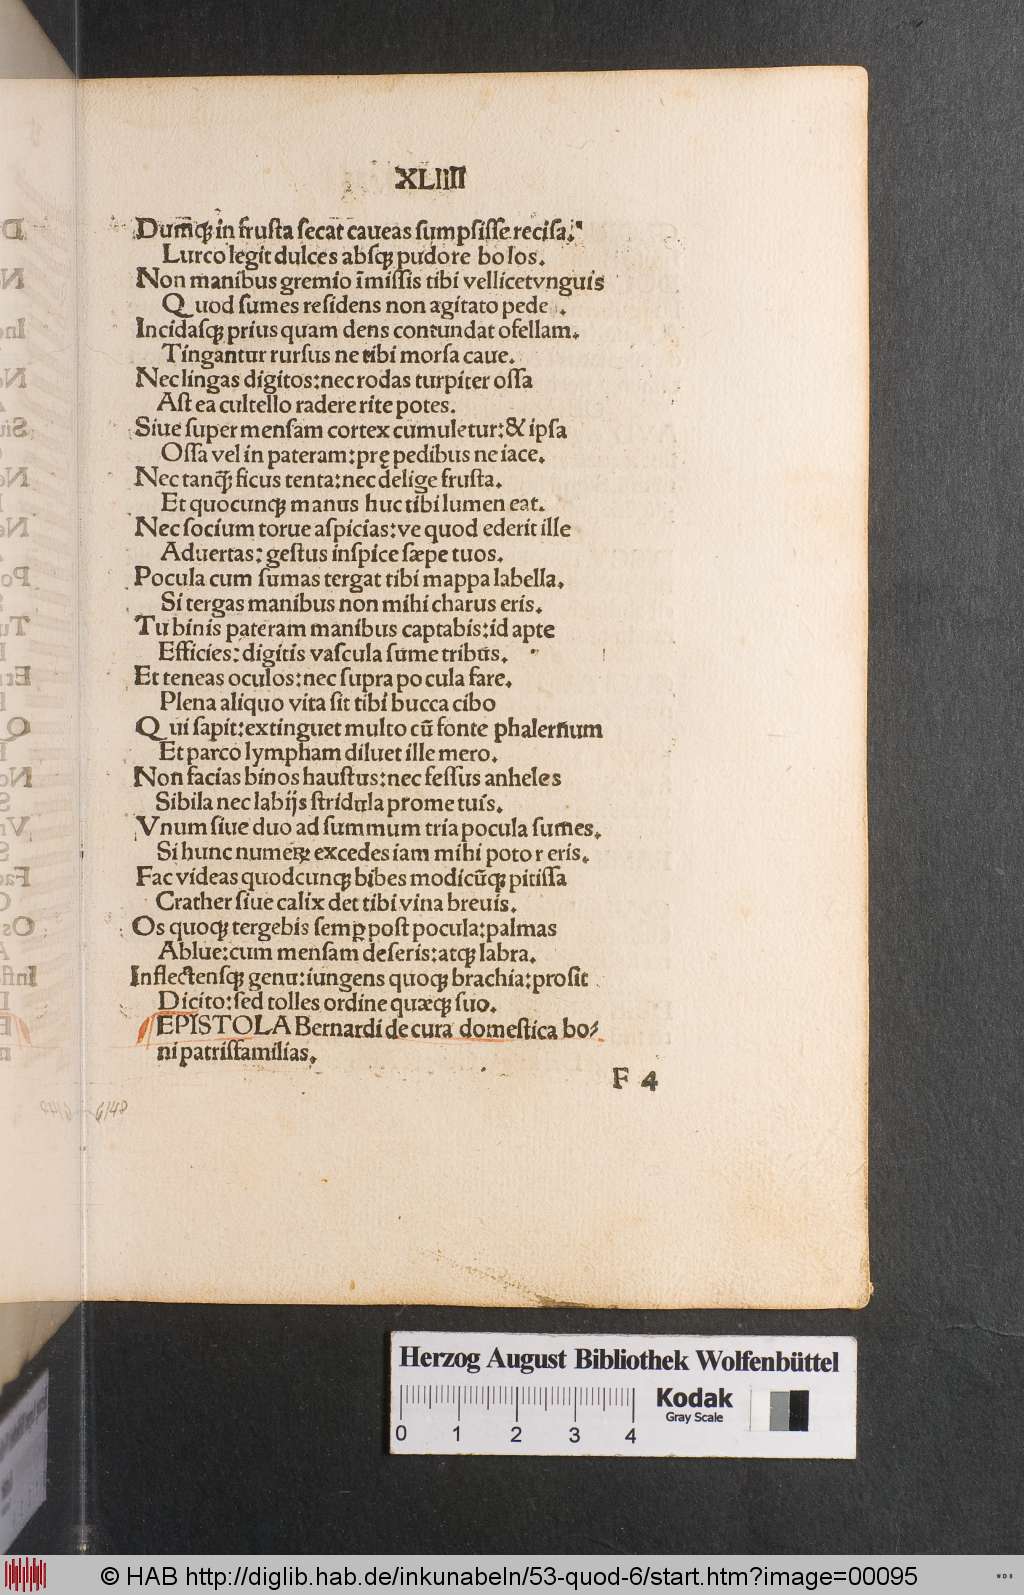 XLIIII
Dum̄qꝫ in fruſta ſecat caueas ſumpſiſſe reciſa.
Lurco legit dulces abſqꝫ pudore bolos.
Non manibus gremio īmiſſis tibi vellicetvnguis
Quod ſumes reſidens non agitato pede .
Incidaſqꝫ prius quam dens contundat ofellam.
Tingantur rurſus ne tibi morſa caue.
Nec lingas digitos: nec rodas turpiter oſſa
Aſt ea cultello radere rite potes.
Siue ſuper menſam cortex cumuletur: & ipſa
Oſſa vel in pateram: prę pedibus ne iace.
Nec tanq̄ꝫ ficus tenta: nec delige fruſta.
Et quocunqꝫ manus huc tibi lumen eat.
Nec ſocium torue aſpicias: ve quod ederit ille
Aduertas: geſtus inſpice ſæpe tuos.
Pocula cum ſumas tergat tibi mappa labella.
Si tergas manibus non mihi charus eris.
Tu binis pateram manibus captabis: id apte
Efficies: digitis vaſcula ſume tribus.
Et teneas oculos: nec ſupra pocula fare.
Plena aliquo vita ſit tibi bucca cibo
Qui ſapit: extinguet multo cū fonte phalern̄um
Et parco lympham diluet ille mero.
Non facias binos hauſtus: nec feſſus anheles
Sibila nec labijs ſtridula prome tuis.
Vnum ſiue duo ad ſummum tria pocula ſumes.
Si hunc numeꝝ excedes iam mihi potor eris.
Fac videas quodcunqꝫ bibes modicūqꝫ pitiſſa
Crather ſiue calix det tibi vina breuis.
Os quoqꝫ tergebis ſemꝑ poſt pocula: palmas
Ablue: cum menſam deſeris: atqꝫ labra.
Inflectenſqꝫ genu: iungens quoqꝫ brachia: proſit
Dicito: ſed tolles ordine quæqꝫ ſuo.
EPISTOLA Bernardi de cura domeſtica bo⸗
ni patriſfamilias.
F 4
Herzog August Bibliothek Wolfenbüttel
Kodak
Gray Scale
0 1 2 3 4
© HAB http://diglib.hab.de/inkunabeln/53-quod-6/start.htm?image=00095